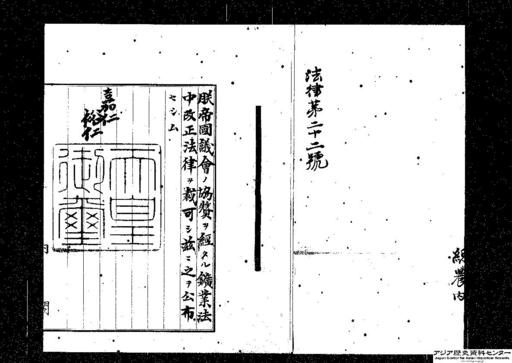 法律第二十二號
朕帝國議會ノ協贊ヲ經タル鑛業法
中改正法律ヲ裁可シ茲ニ之ヲ公布
セシム
嘉仁
裕仁
天皇
御璽
アジア歴史資料センター
Japan Center for Asian Historical Records